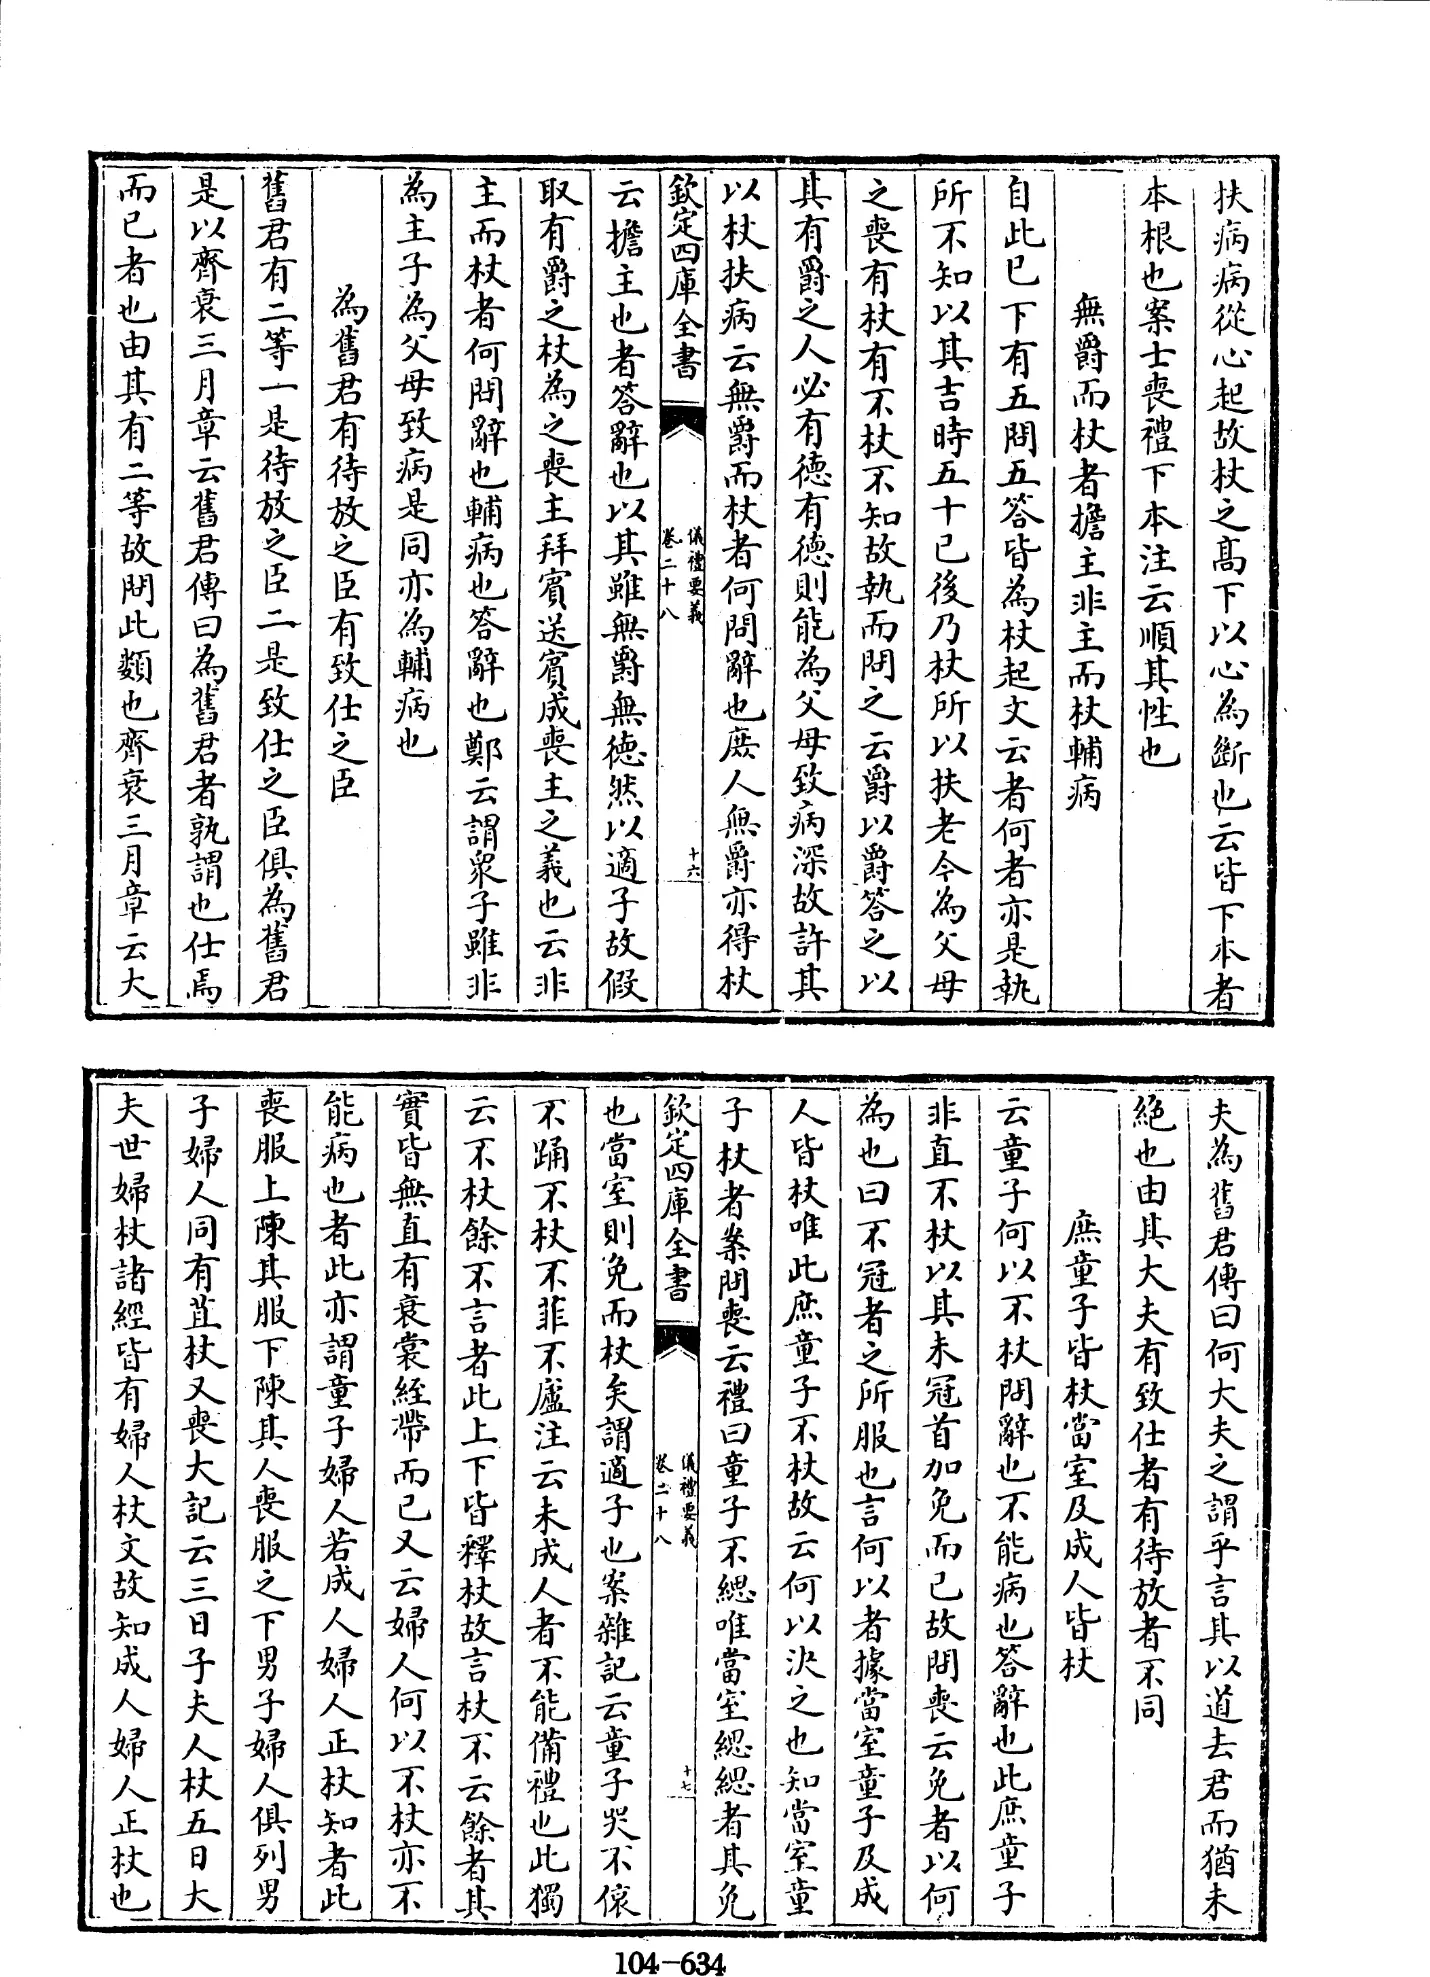 扶病病從心起故杖之高下以心為斷也云皆下本者
本根也案士喪禮下本注云順其性也
無爵而杖者擔主非主而杖輔病
自此已下有五問五答皆為杖起文云者何者亦是執
所不知以其吉時五十已後乃杖所以扶老今為父母
之喪有杖有不杖不知故執而問之云爵以爵答之以
其有爵之人必有德有德則能為父母致病深故許其
以杖扶病云無爵而杖者何問辭也庶人無爵亦得杖
欽定四庫全書
儀禮要義
卷二十八
十六
云擔主也者答辭也以其雖無爵無德然以適子故假
取有爵之杖為之喪主拜賓送賓成喪主之義也云非
主而杖者何問辭也輔病也答辭也鄭云謂衆子雖非
為主子為父母致病是同亦為輔病也
為舊君有待放之臣有致仕之臣
舊君有二等一是待放之臣二是致仕之臣俱為舊君
是以齊衰三月章云舊君傳曰為舊君者孰謂也仕焉
而已者也由其有二等故問此類也齊衰三月章云大
夫為舊君傳曰何大夫之謂乎言其以道去君而猶未
絕也由其大夫有致仕者有待放者不同
庶童子皆杖當室及成人皆杖
云童子何以不杖問辭也不能病也答辭也此庶童子
非直不杖以其未冠首加免而已故問喪云免者以何
為也曰不冠者之所服也言何以者據當室童子及成
人皆杖唯此庶童子不杖故云何以決之也知當室童
子杖者案問喪云禮曰童子不緦唯當室緦緦者其免
欽定四庫全書
儀禮要義
卷二十八
十七
也當室則免而杖矣謂適子也案雜記云童子哭不偯
不踊不杖不菲不廬注云未成人者不能備禮也此獨
云不杖餘不言者此上下皆釋杖故言杖不云餘者其
實皆無直有衰裳絰帶而已又云婦人何以不杖亦不
能病也者此亦謂童子婦人若成人婦人正杖知者此
喪服上陳其服下陳其人喪服之下男子婦人俱列男
子婦人同有苴杖又喪大記云三日子夫人杖五日大
夫世婦杖諸經皆有婦人杖文故知成人婦人正杖也
104-634